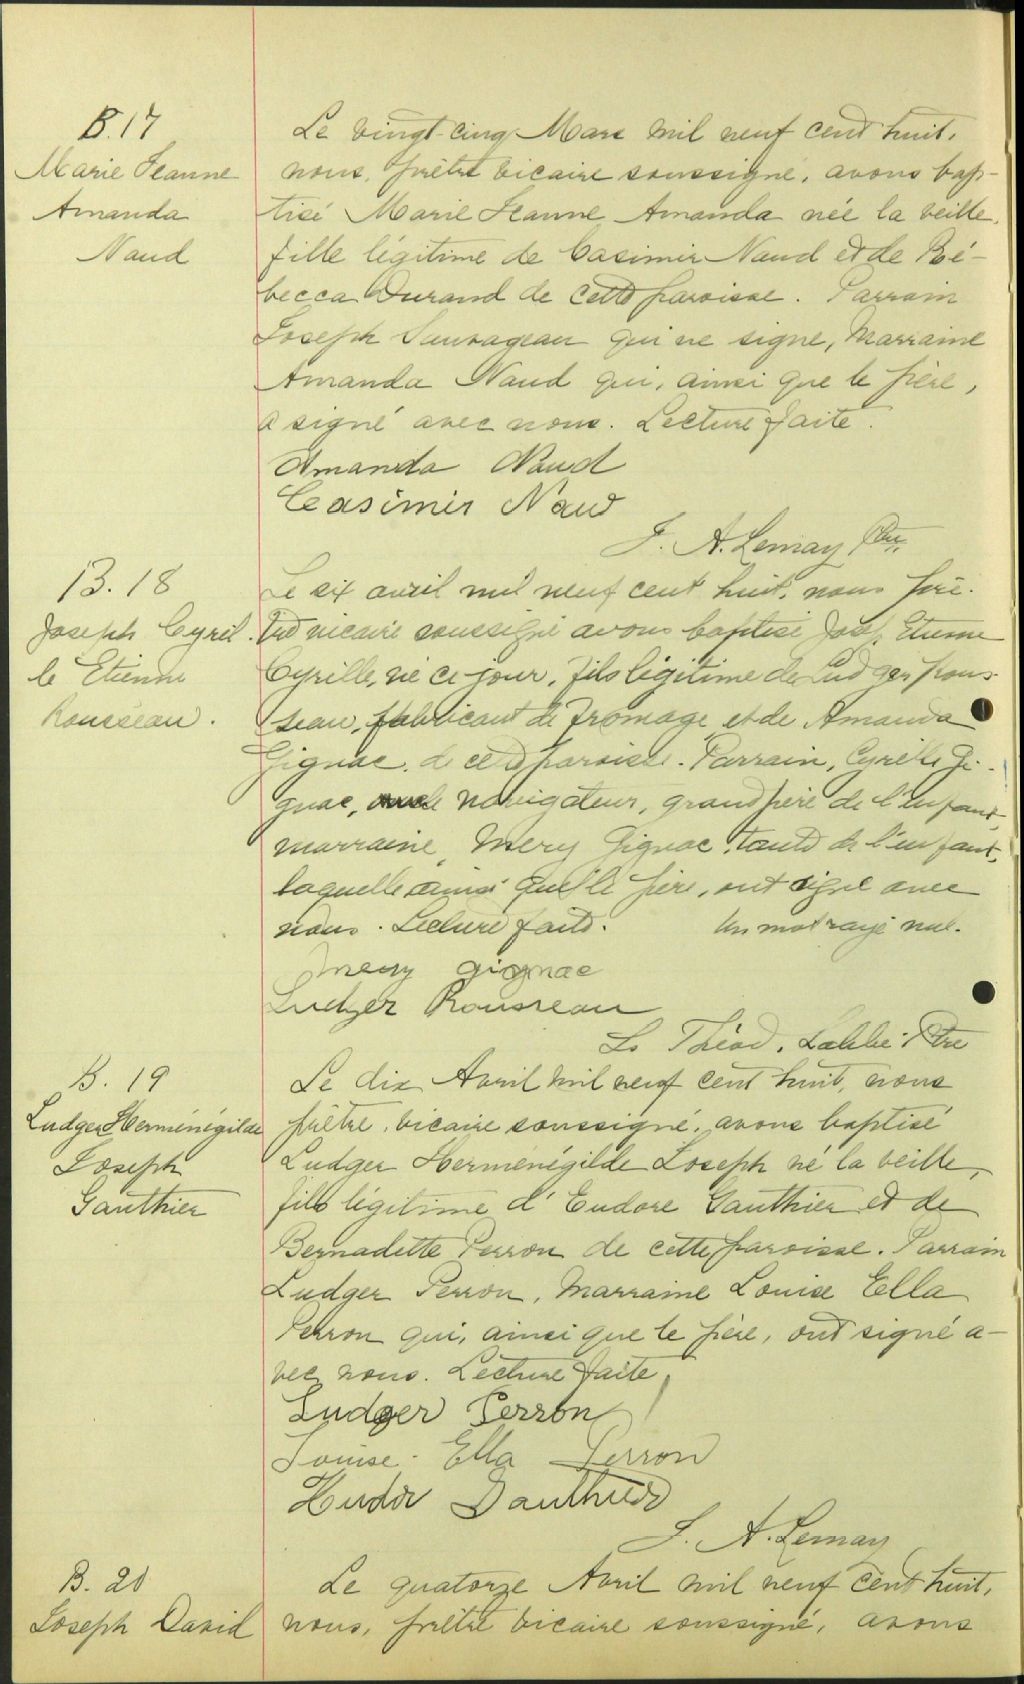 B. 17
Marie Jeanne
Amanda
Naud
Le vingt-cinq Mars mil neuf cent huit,
nous, prêtre vicaire soussigné, avons bap-
tisé Marie Jeanne Amanda née la veille,
fille légitime de Casimir Naud et de Ré-
becca Durand de cette paroisse. Parrain
Joseph Sauvageau qui ne signe, Marraine
Amanda Naud qui, ainsi que le père,
a signé avec nous. Lecture faite.
Amanda Naud
Casimir Naud
J. A. Lemay Ptre
B. 18
Joseph Cyril
le Etienne
Rousseau.
Le six avril mil neuf cent huit, nous prê-
tre vicaire soussigné avons baptisé Jos. Etienne
Cyrille, né ce jour, fils légitime de Ludger Rous-
seau, fabricant de fromage, et de Amanda
Gignac, de cette paroisse. Parrain, Cyrille Gi-
gnac, navigateur, grand père de l'enfant,
marraine, Mery Gignac, tante de l'enfant,
laquelle ainsi que le père, ont signé avec
nous. Lecture faite. Un mot rayé nul.
Mery gignac
Ludger Rousseau
Ls Théod. Labbé Ptre
B. 19
Ludger Herménégilde
Joseph
Gauthier
Le dix Avril mil neuf cent huit, nous
prêtre, vicaire soussigné, avons baptisé
Ludger Herménégilde Joseph né la veille,
fils légitime d'Eudore Gauthier et de
Bernadette Perron de cette paroisse. Parrain
Ludger Perron, Marraine Louise Ella
Perron qui, ainsi que le père, ont signé a-
vec nous. Lecture faite,
Ludger Perron
Louise Ella Perron
Hudor Gauthier
J. A. Lemay
B. 20
Joseph David
Le quatorze Avril mil neuf cent huit,
nous, prêtre vicaire soussigné, avons